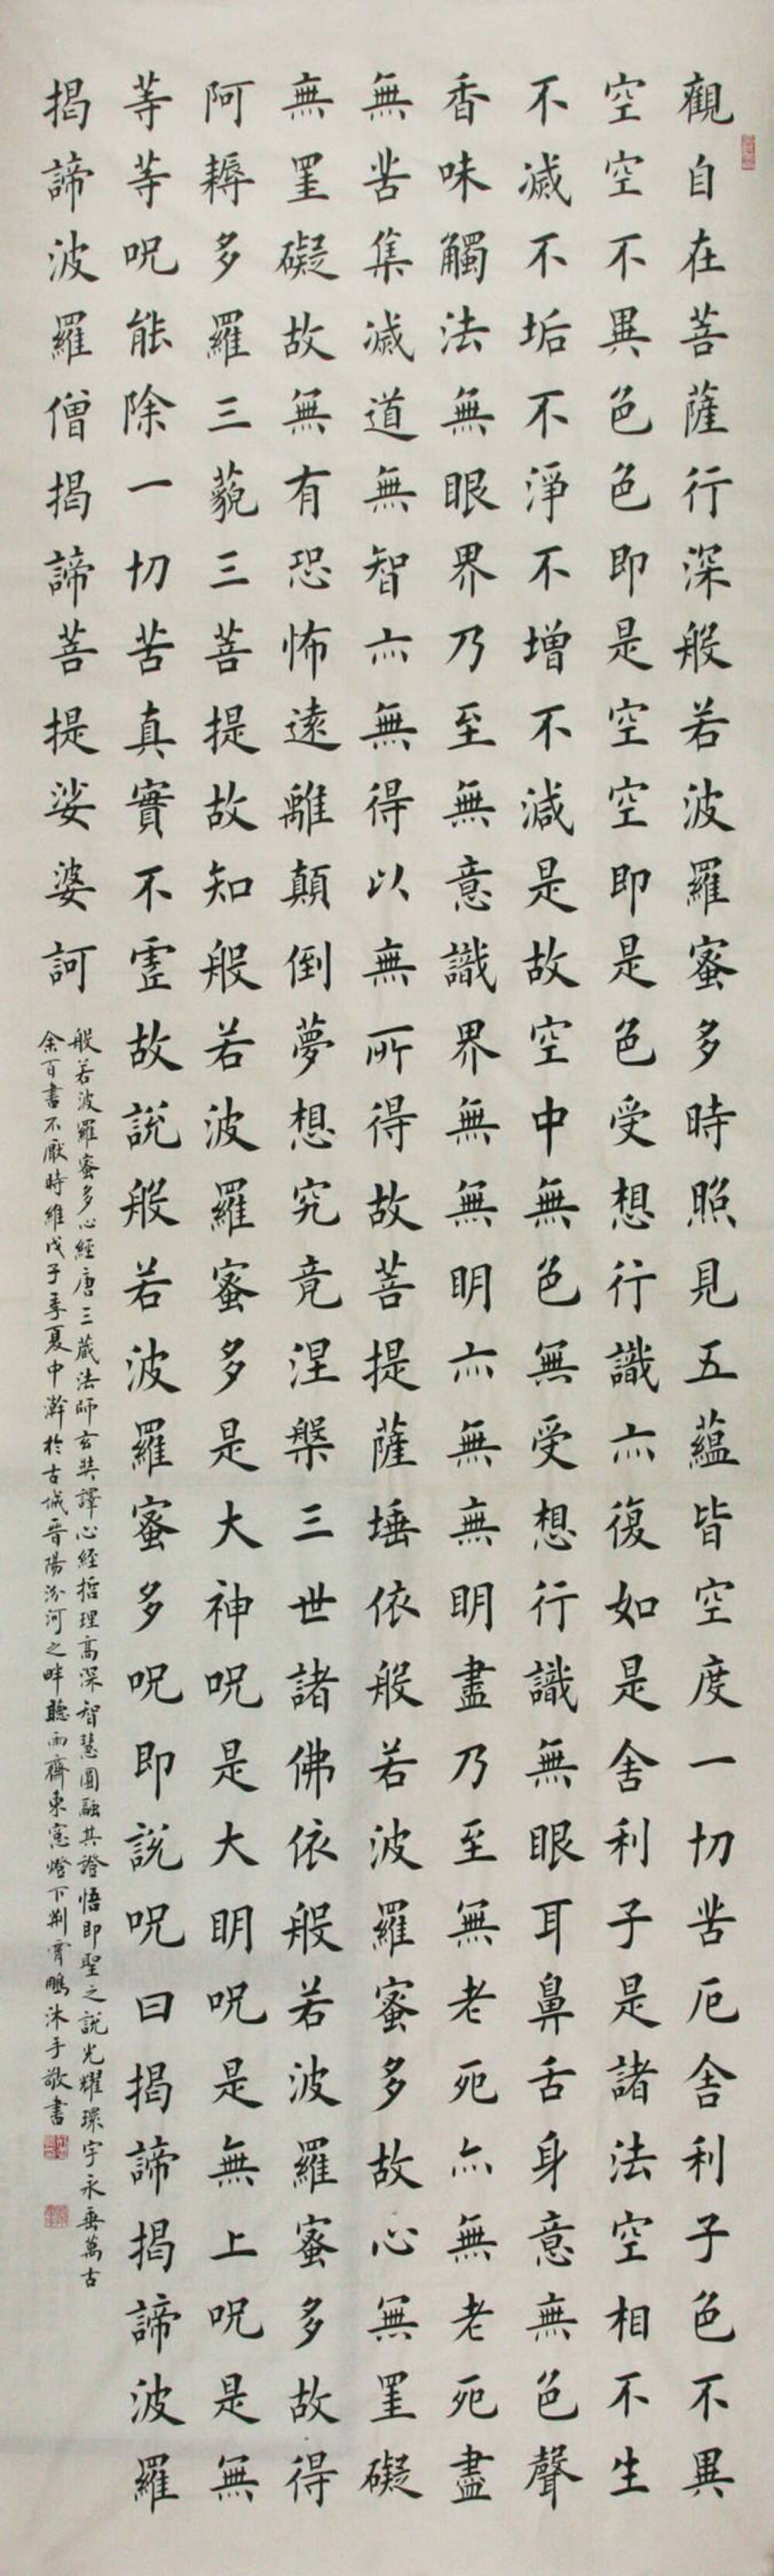 觀自在菩薩行深般若波羅蜜多時照見五蘊皆空度一切苦厄舍利子色不異
空空不異色色即是空空即是色受想行識亦復如是舍利子是諸法空相不生
不滅不垢不淨不增不減是故空中無色無受想行識無眼耳鼻舌身意無色聲
香味觸法無眼界乃至無意識界無無明亦無無明盡乃至無老死亦無老死盡
無苦集滅道無智亦無得以無所得故菩提薩埵依般若波羅蜜多故心無罣礙
無罣礙故無有恐怖遠離顛倒夢想究竟涅槃三世諸佛依般若波羅蜜多故得
阿耨多羅三藐三菩提故知般若波羅蜜多是大神呪是大明呪是無上呪是無
等等呪能除一切苦真實不虛故說般若波羅蜜多呪即說呪曰揭諦揭諦波羅
揭諦波羅僧揭諦菩提娑婆訶
般若波羅蜜多心經唐三藏法師玄奘譯心經哲理高深智慧圓融其證悟即聖之說光耀環宇永垂萬古
余百書不厭時維戊子季夏中澣於古城晉陽汾河之畔聽雨齋東窓燈下荊霄鵬沐手敬書